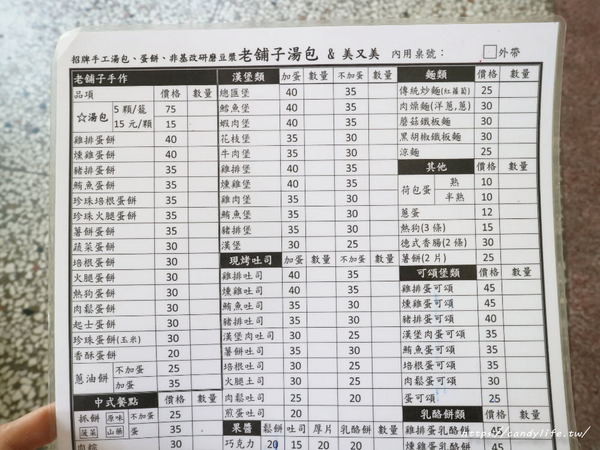 招牌手工湯包、蛋餅、非基改研磨豆漿 老舖子湯包 & 美又美 內用桌號： □外帶
老舖子手作
品項 價格 數量
☆湯包 5顆/籠 75
15元/顆 15
雞排蛋餅 40
燻雞蛋餅 40
豬排蛋餅 35
鮪魚蛋餅 35
珍珠培根蛋餅 35
珍珠火腿蛋餅 35
薯餅蛋餅 35
蔬菜蛋餅 30
培根蛋餅 30
火腿蛋餅 30
熱狗蛋餅 30
肉鬆蛋餅 30
起士蛋餅 30
珍珠蛋餅(玉米) 30
香酥蛋餅 20
蔥油餅 不加蛋 25
加蛋 35
中式餐點 價格 數量
抓餅 原味 不加蛋 25
蔬菜 山藥 加蛋 35
肉粽 30
漢堡類 加蛋 數量 不加蛋 數量
總匯堡 40 35
鱈魚堡 40 35
蝦肉堡 40 35
花枝堡 40 35
牛肉堡 40 35
雞排堡 40 35
燻雞堡 40 35
鮪魚堡 35
豬排堡 35 30
漢堡 30 25
現烤吐司 加蛋 數量 不加蛋 數量
雞排吐司 40 35
燻雞吐司 40 35
鮪魚吐司 35 30
豬排吐司 35 30
漢堡肉吐司 35 30
薯餅吐司 35 30
培根吐司 30 25
火腿土司 30 25
肉鬆吐司 30 25
煎蛋吐司 20
果醬 鬆餅 吐司 厚片 乳酪餅 數量
巧克力 20 15 20 20
麵類 價格 數量
傳統炒麵(紅蘿蔔) 25
肉燥麵(洋蔥,蔥) 30
蘑菇鐵板麵 30
黑胡椒鐵板麵 30
涼麵 25
其他 價格 數量
荷包蛋 熟 10
半熟 10
蔥蛋 12
熱狗(3條) 15
德式香腸(2條) 30
薯餅(2片) 25
可頌堡類 價格 數量
雞排蛋可頌 45
燻雞蛋可頌 45
鮪魚蛋可頌 45
豬排蛋可頌 45
漢堡肉蛋可頌 35
薯餅蛋可頌 35
培根蛋可頌 35
肉鬆蛋可頌 30
蛋可頌 25
乳酪餅類 價格 數量
雞排蛋乳酪餅 45
燻雞蛋乳酪餅 45
https://candylife.tw/